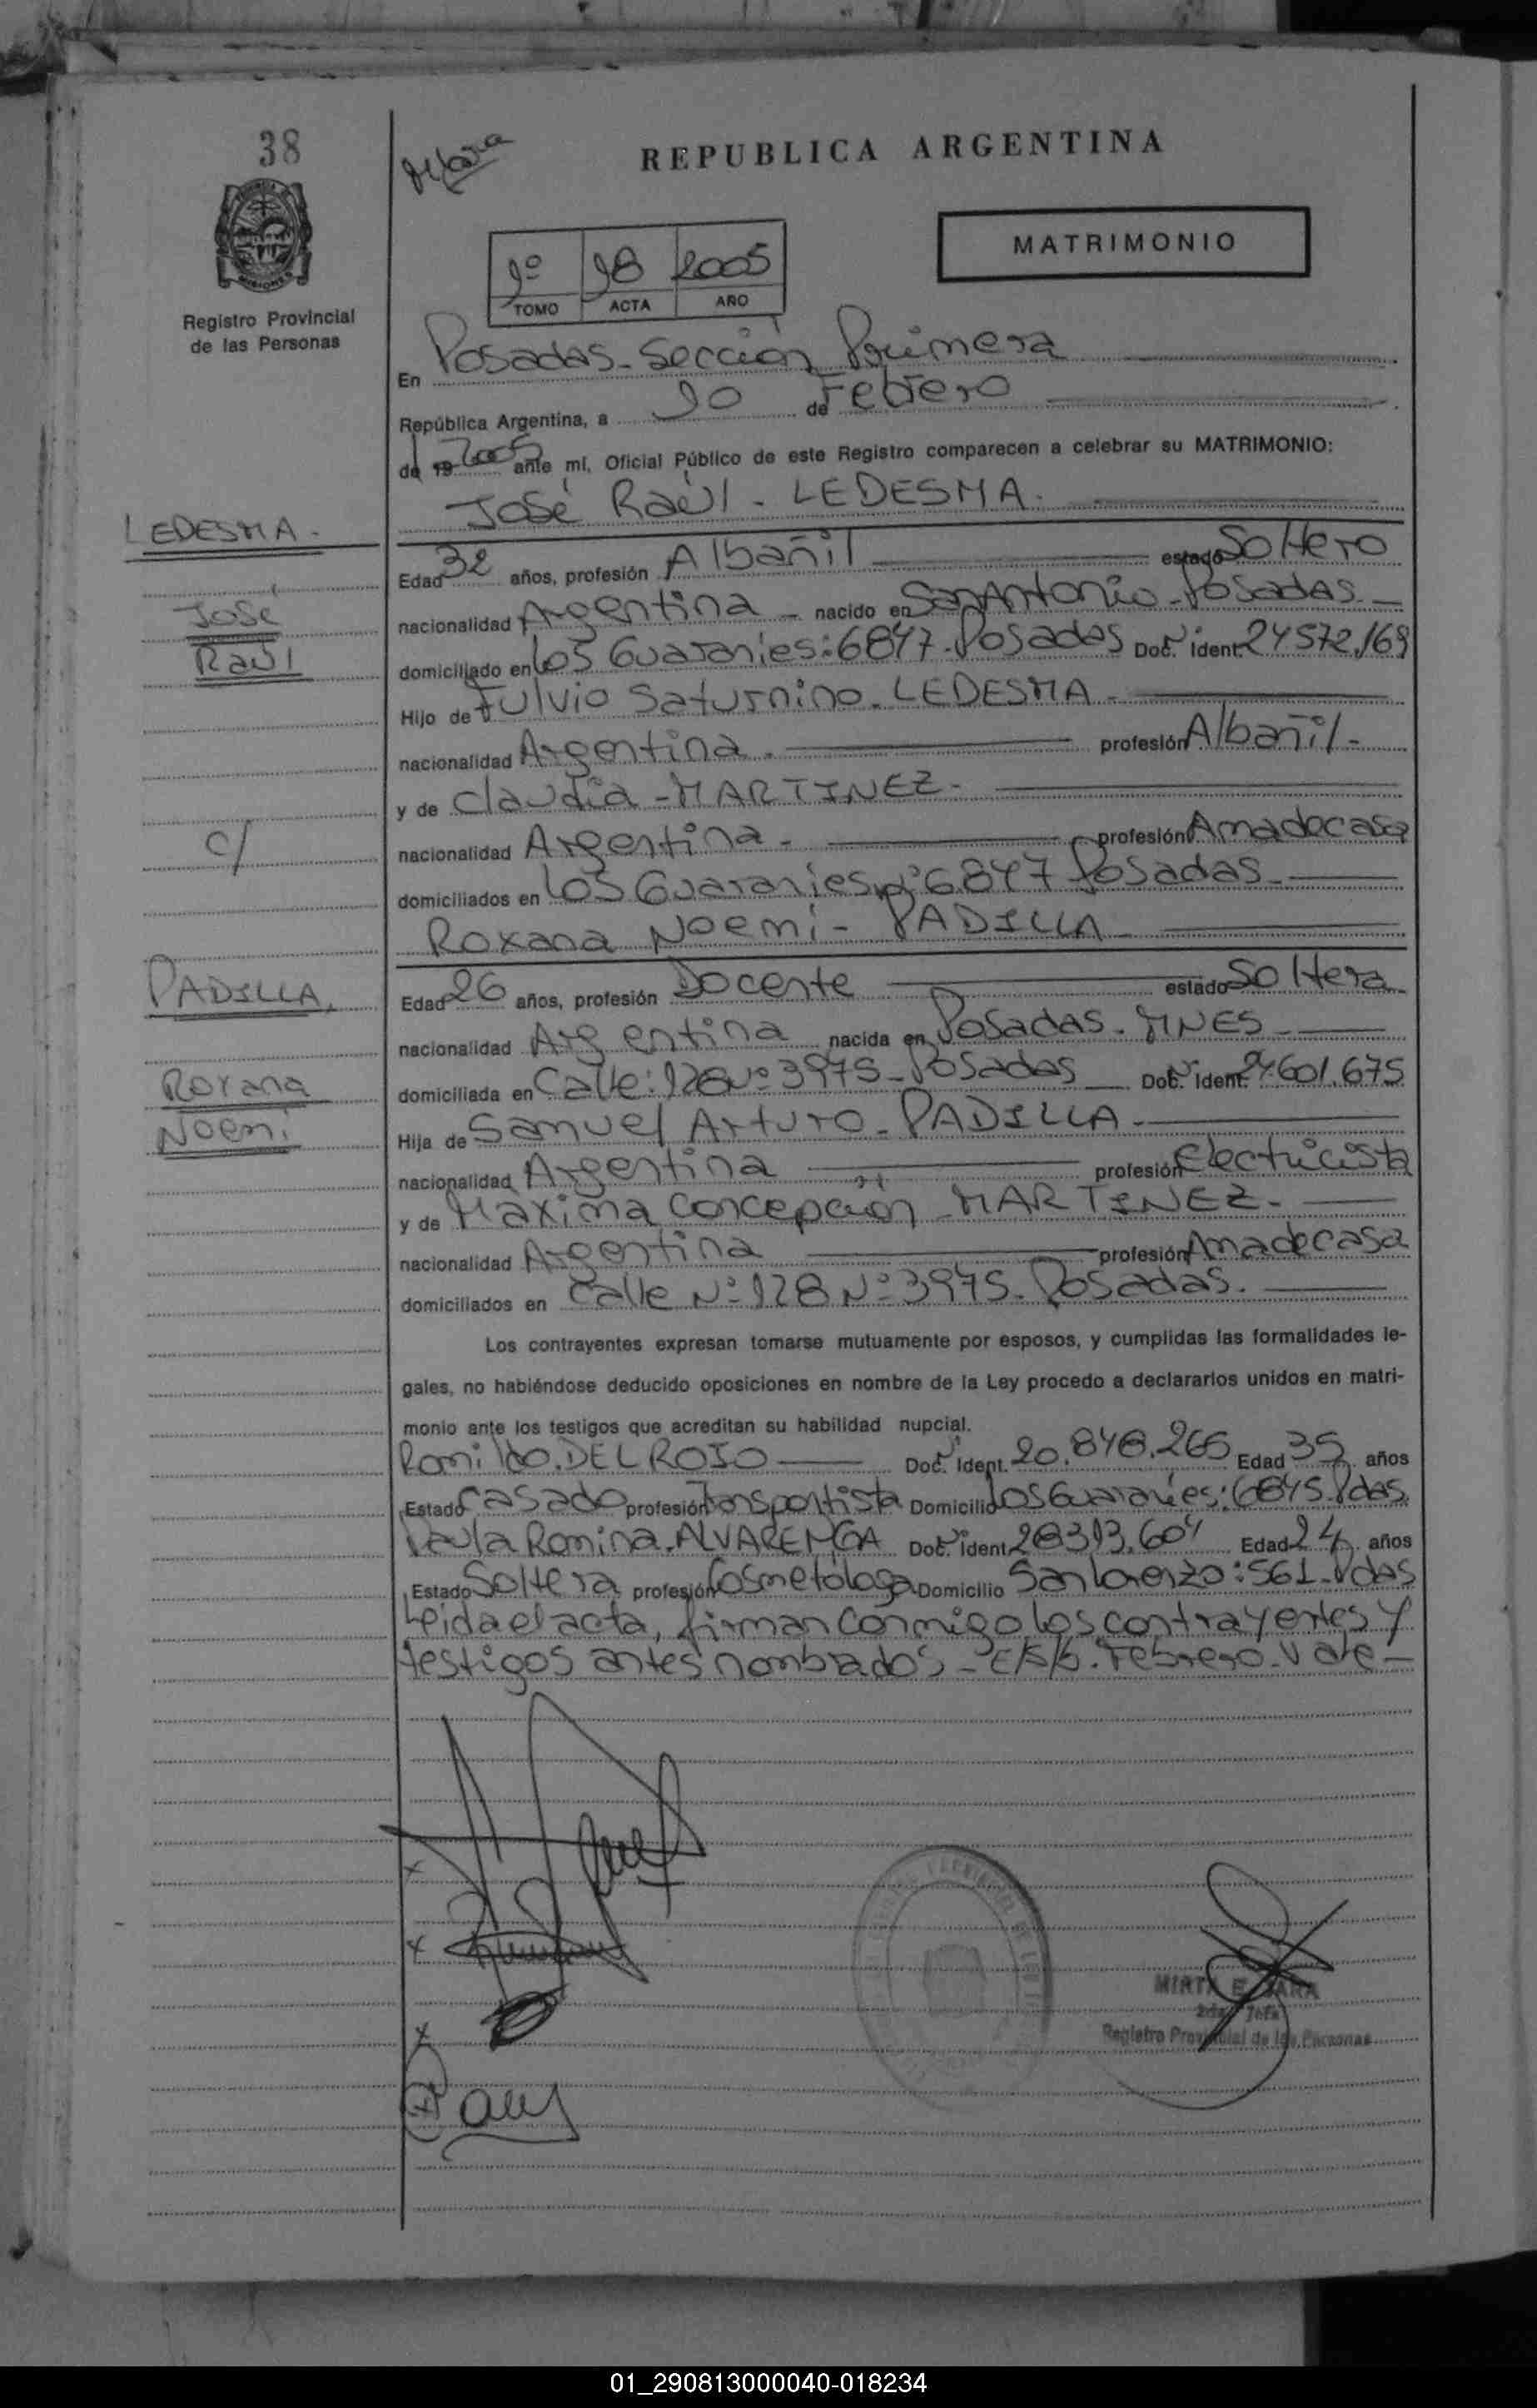 38
REPUBLICA ARGENTINA
MATRIMONIO
1º 38 2005
TOMO ACTA AÑO
Registro Provincial
de las Personas
En Posadas - Sección Primera
República Argentina, a 10 de Febrero
de 19 2005 ante mí, Oficial Público de este Registro comparecen a celebrar su MATRIMONIO:
José Raúl - LEDESMA.
LEDESMA -
Edad 32 años, profesión Albañil estado Soltero
José
nacionalidad Argentina - nacido en San Antonio - Posadas -
Raúl
domiciliado en Los Guaraníes: 6847 - Posadas Doc. Ident. 24572.169
Hijo de Fulvio Saturnino - LEDESMA -
nacionalidad Argentina - profesión Albañil -
y de Claudia - MARTINEZ -
c/
nacionalidad Argentina - profesión Amadecasa
domiciliados en Los Guaraníes Nº 6847 Posadas -
Roxana Noemí - PADILLA
PADILLA,
Edad 26 años, profesión Docente estado Soltera
nacionalidad Argentina nacida en Posadas - MNES -
Roxana
domiciliada en Calle: 128 Nº 3975 - Posadas Doc. Ident. 27.601.675
Noemí
Hija de Samuel Arturo - PADILLA -
nacionalidad Argentina profesión Electricista
y de Máxima Concepción - MARTINEZ -
nacionalidad Argentina profesión Amadecasa
domiciliados en Calle Nº 128 Nº 3975 - Posadas.
Los contrayentes expresan tomarse mutuamente por esposos, y cumplidas las formalidades le-
gales, no habiéndose deducido oposiciones en nombre de la Ley procedo a declararlos unidos en matri-
monio ante los testigos que acreditan su habilidad nupcial.
Romildo. DEL ROJO Doc. Ident. 20.848.265 Edad 35 años
Estado Casado profesión Transportista Domicilio Los Guaraníes: 6845 Pdas.
Paula Romina. ALVARENGA Doc. Ident. 28313.604 Edad 24 años
Estado Soltera profesión Cosmetóloga Domicilio San Lorenzo: 561 - Pdas
Leida el acta, firman conmigo los contrayentes y
testigos antes nombrados - E/S/b. Febrero. Vale -
MIRTA E. JARA
Registro Provincial de las Personas
01_290813000040-018234